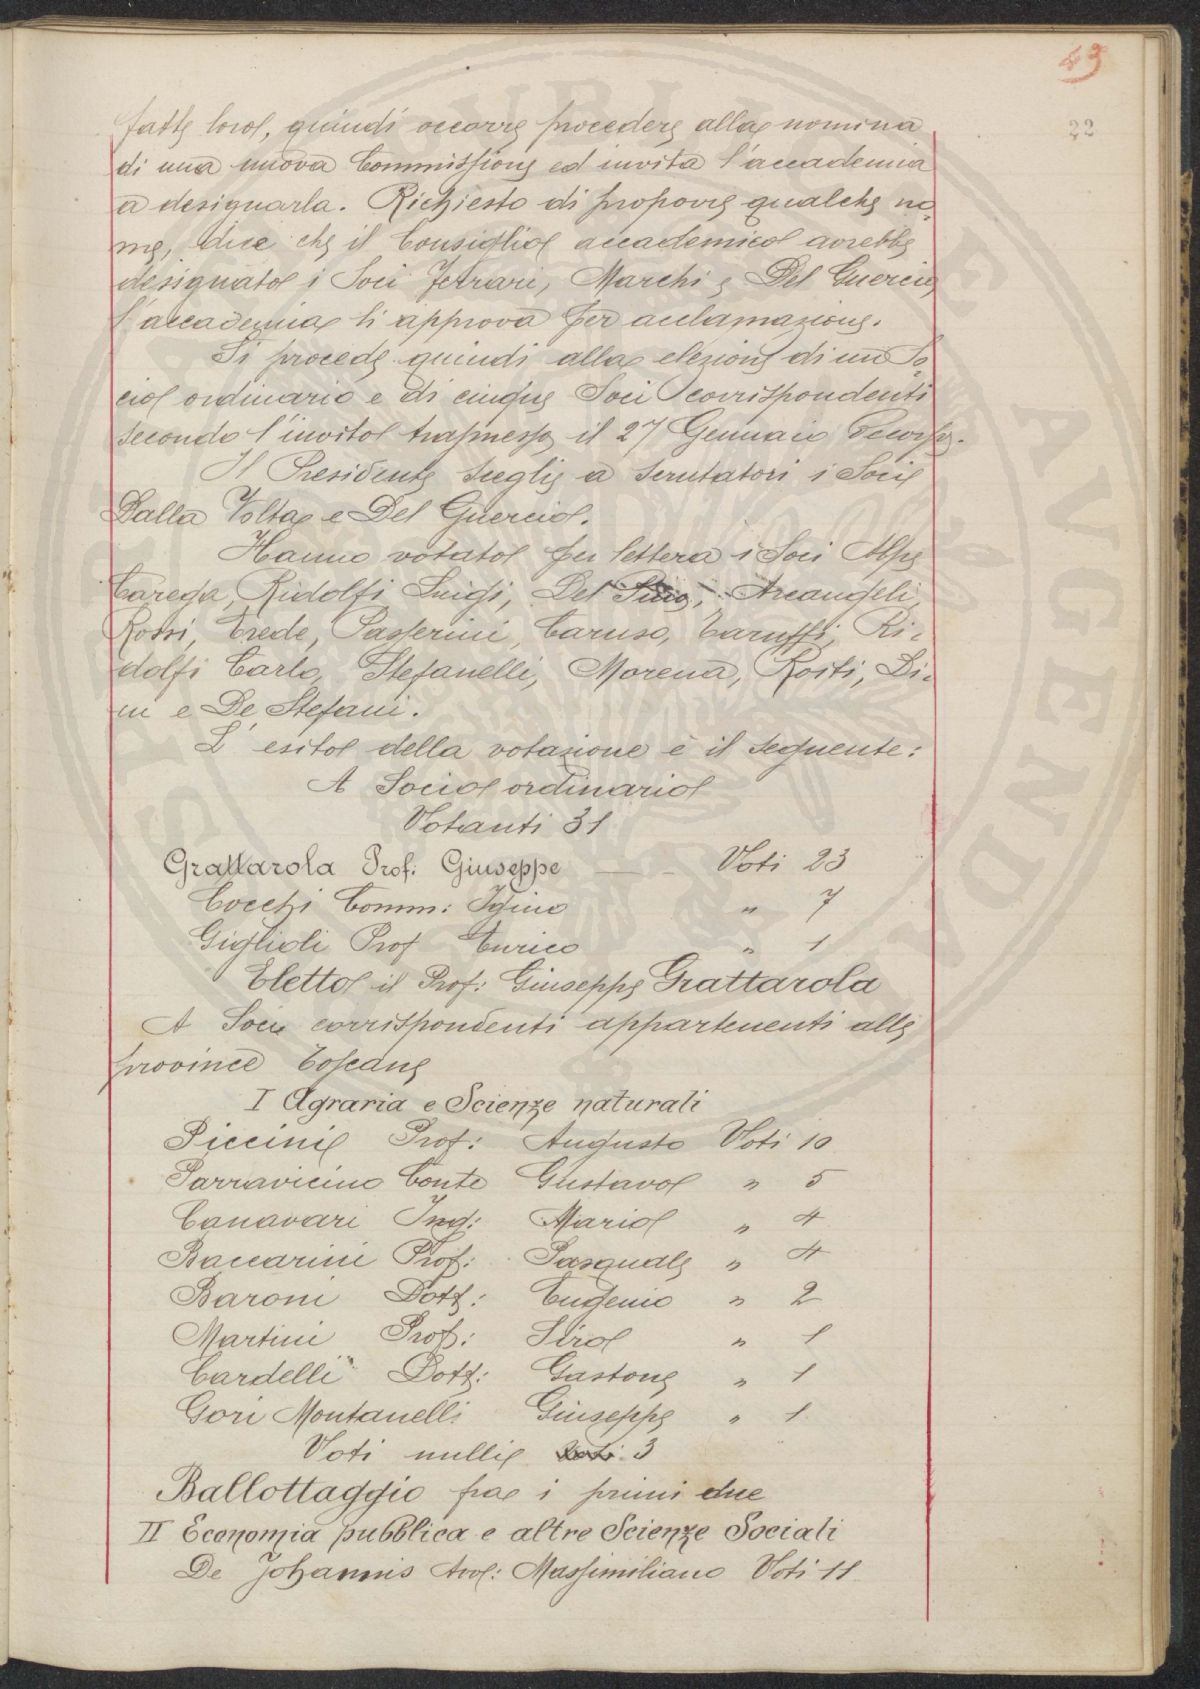 53
22
fatte loro, quindi occorre procedere alla nomina
di una nuova Commissione ed invita l'accademia
a designarla. Richiesto di proporre qualche no-
me, dice che il Consiglio accademico avrebbe
designato i Soci Ferrari, Marchi e Del Guercio
l'accademia li approva per acclamazione.
Si procede quindi alla elezione di un So-
cio ordinario e di cinque Soci corrispondenti
secondo l'invito trasmesso il 27 Gennaio decorso.
Il Presidente sceglie a scrutatori i Soci
Dalla Volta e Del Guercio.
Hanno votato per lettera i Soci Alpe
Carega, Ridolfi Luigi, Del Arcangeli,
Rossi, Erede, Passerini, Caruso, Taruffi, Ri-
dolfi Carlo, Stefanelli, Morena, Rosti, Di-
ni e De Stefani.
L'esito della votazione è il seguente:
A Socio ordinario
Votanti 31
Grattarola Prof. Giuseppe — - Voti 23
Cocchi Comm: Igino " 7
Giglioli Prof Enrico " 1
Eletto il Prof: Giuseppe Grattarola
A Soci corrispondenti appartenenti alle
province Toscane
I Agraria e Scienze naturali
Piccini Prof: Augusto Voti 10
Parravicino Conte Gustavo " 5
Canavari Ing: Mario " 4
Baccarini Prof: Pasquale " 4
Baroni Dott: Eugenio " 2
Martini Prof: Siro " 1
Cardelli Dott: Gastone " 1
Gori Montanelli Giuseppe " 1
Voti nulli 3
Ballottaggio fra i primi due
II Economia pubblica e altre Scienze Sociali
De Johannis Avv: Massimiliano Voti 11